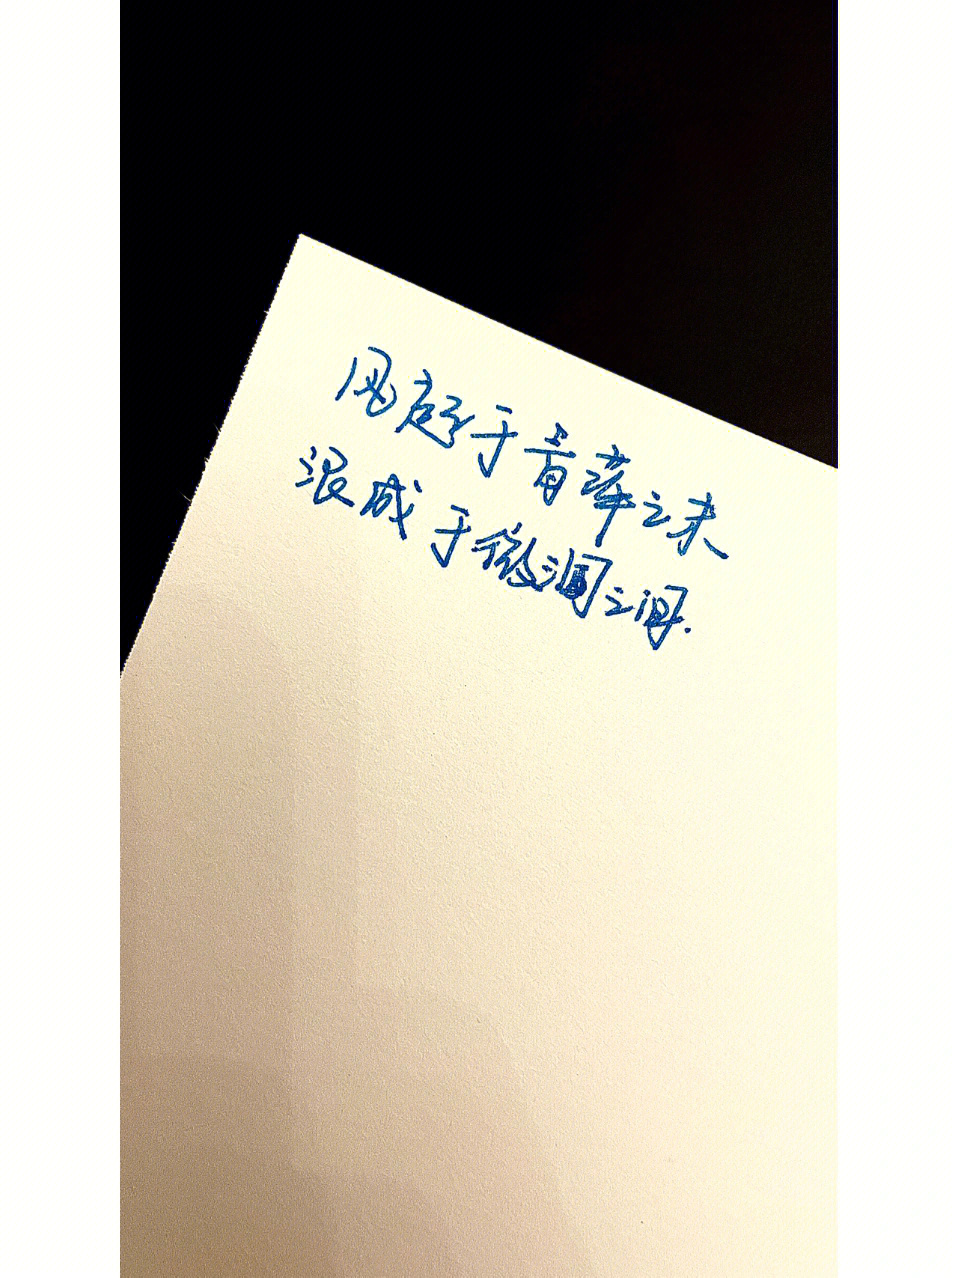 风起于青萍之末
浪成于微澜之间.